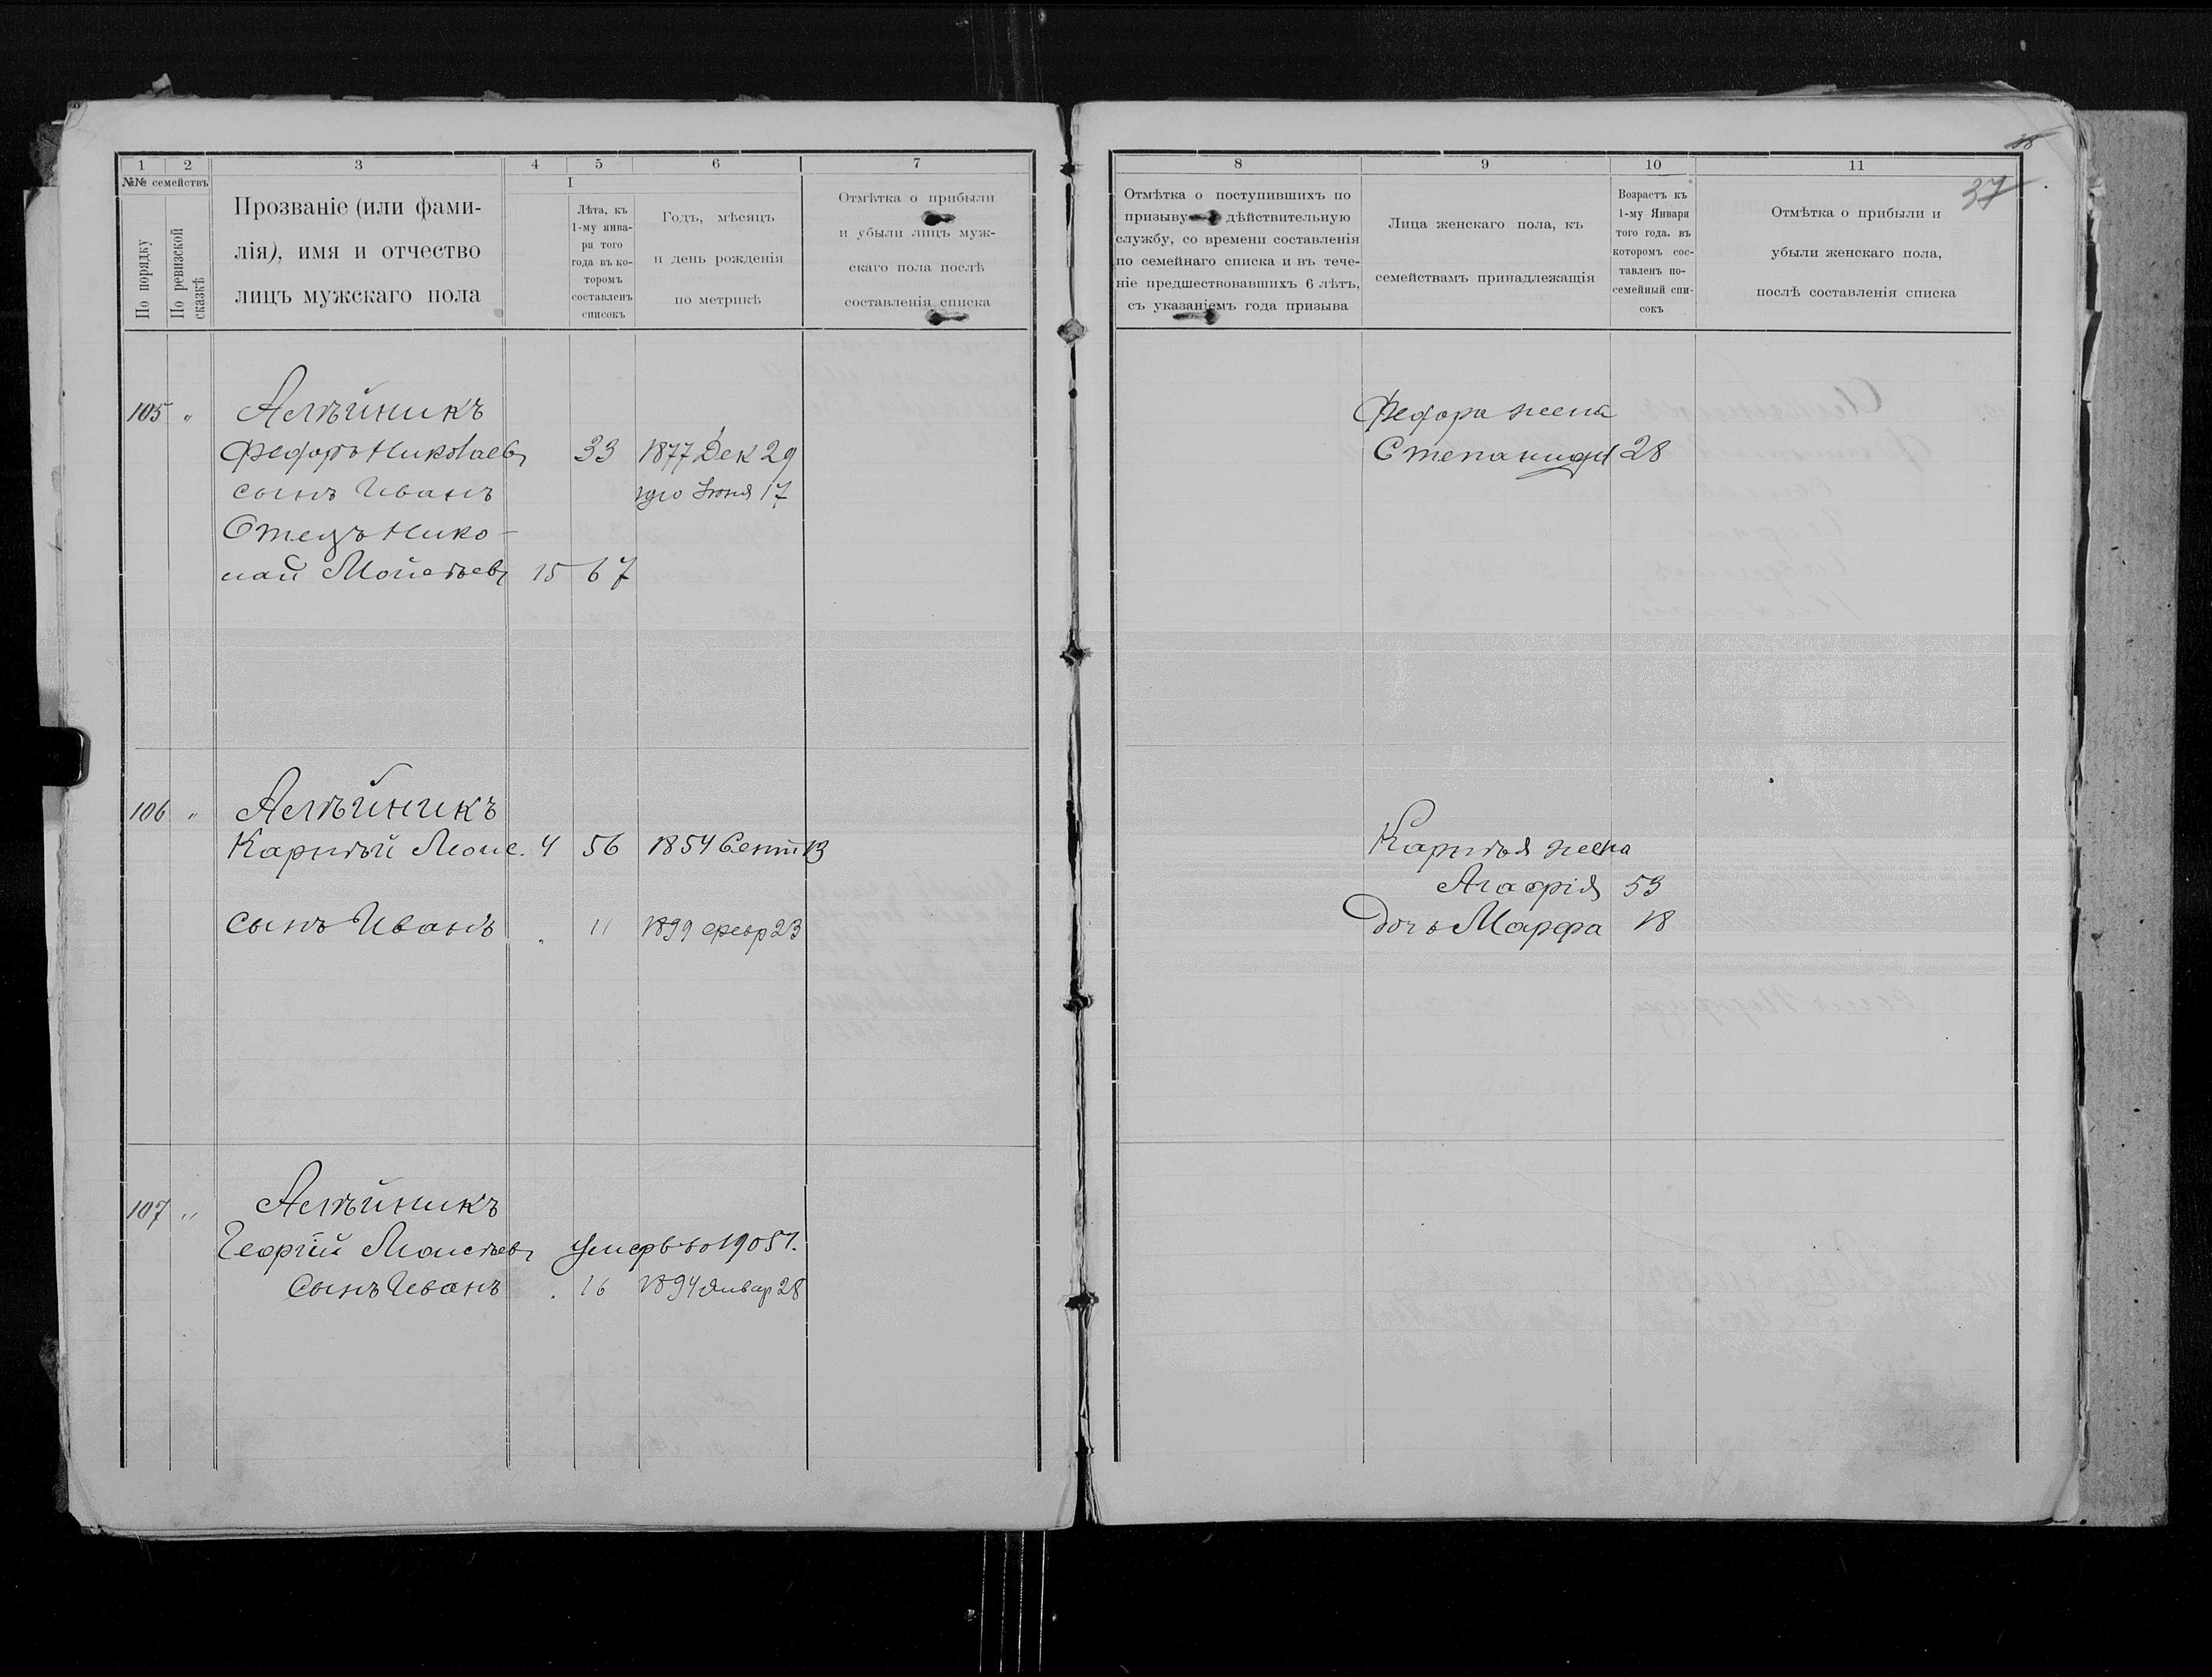 1 2 3 4 5 6 7
I
№№ семействъ
По порядку
По ревизской сказкѣ
Прозваніе (или фами-
лія), имя и отчество
лицъ мужскаго пола
Лѣта, къ
1-му янва-
ря того
года въ ко-
торомъ
составленъ
списокъ
Годъ, мѣсяцъ
и день рожденія
по метрикѣ
Отмѣтка о прибыли
и убыли лицъ муж-
скаго пола послѣ
составленія списка
105 " Алѣйникъ
Федоръ Николаевъ 33 1877 Дек 29
сынъ Иванъ 1910 Іюня 17
Отецъ Нико-
лай Мойсѣевъ 15 67
106 " Алѣйникъ
Карпѣй Моис. 4 56 1854 Сент 13
сынъ Иванъ " 11 1899 февр 23
107 " Алѣйникъ
Георгій Моисѣевъ умеръ въ 1905 г.
Сынъ Иванъ . 16 1894 Январ 28
38
8 9 10 11
37
Отмѣтка о поступившихъ по
призыву дѣйствительную
службу, со времени составленія
по семейнаго списка и въ тече-
ніе предшествовавшихъ 6 лѣтъ,
съ указаніемъ года призыва
Лица женскаго пола, къ
семействамъ принадлежащія
Возрастъ къ
1-му Января
того года. въ
которомъ сос-
тавленъ по-
семейный спи-
сокъ
Отмѣтка о прибыли и
убыли женскаго пола,
послѣ составленія списка
Федора жена
Степанида 28
Карпѣя жена
Агафія 53
Дочь Марфа 18